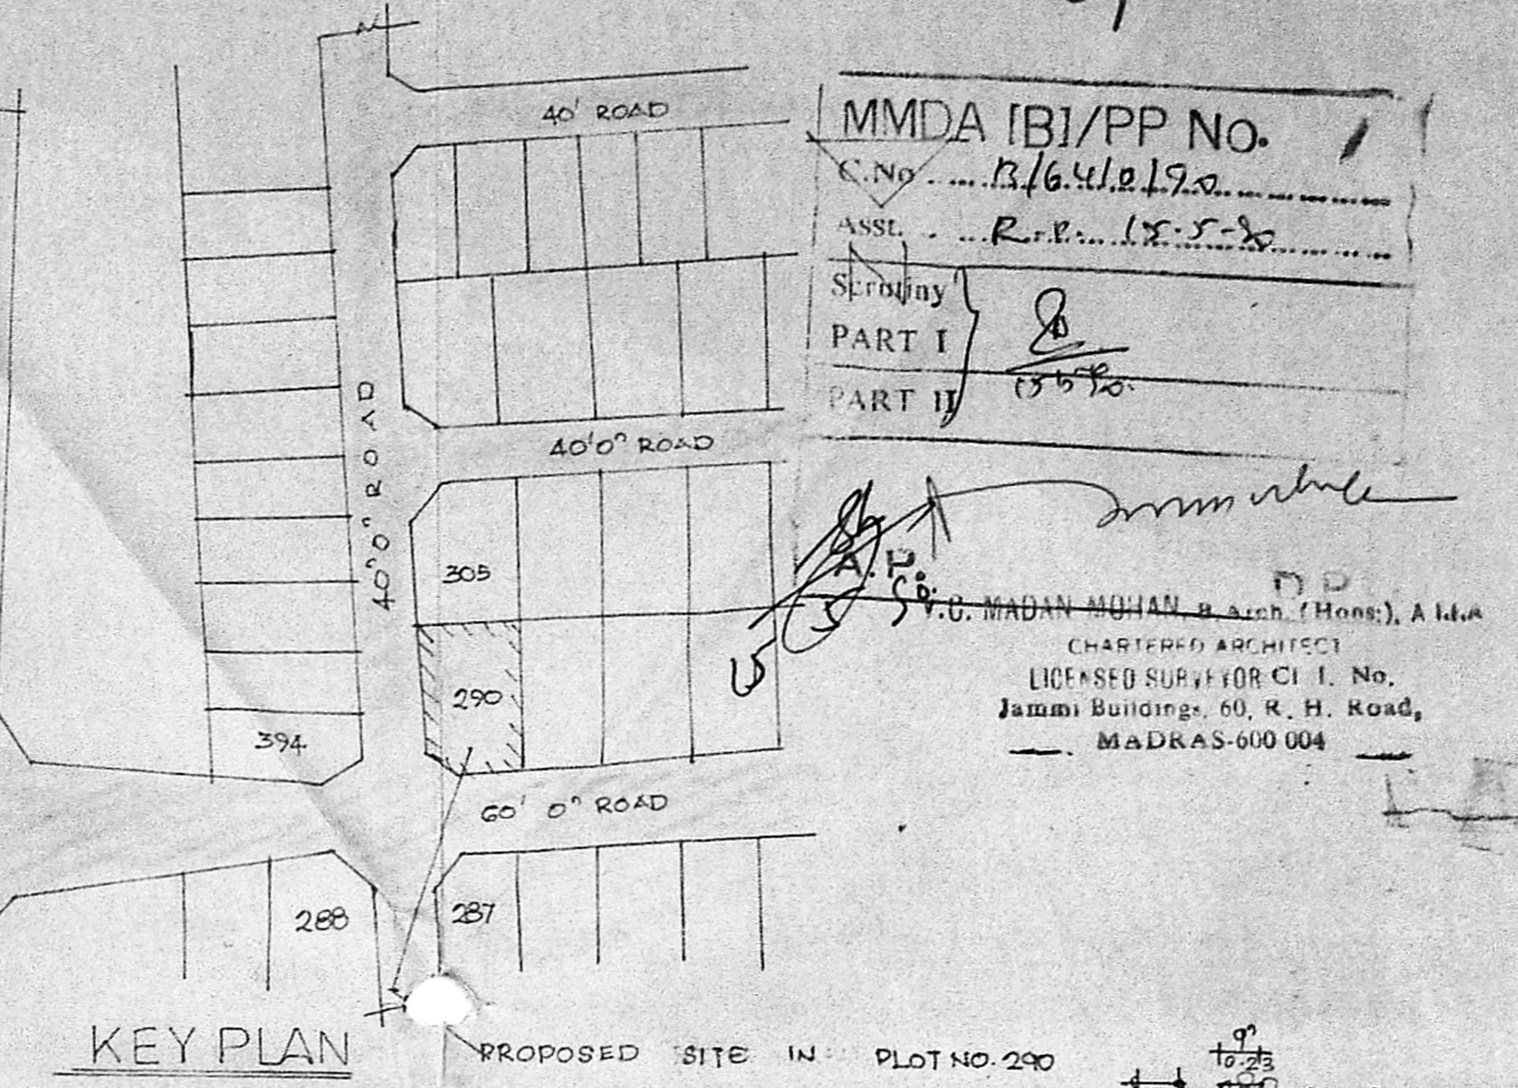 40' ROAD
MMDA [B]/PP No.
C.No. B/6410/90
Asst. R.P. 15-5-90
Scrutiny
PART I
PART II
40'0" ROAD
40'0" ROAD
305
A.P.
V.C. MADAN MOHAN, B. Arch. (Hons:), A.I.I.A
CHARTERED ARCHITECT
LICENSED SURVEYOR Cl. I. No.
290
Jammi Buildings, 60, R. H. Road,
394
MADRAS-600 004
60' 0" ROAD
288
287
KEY PLAN
PROPOSED SITE IN PLOT NO. 290
9"
0.23